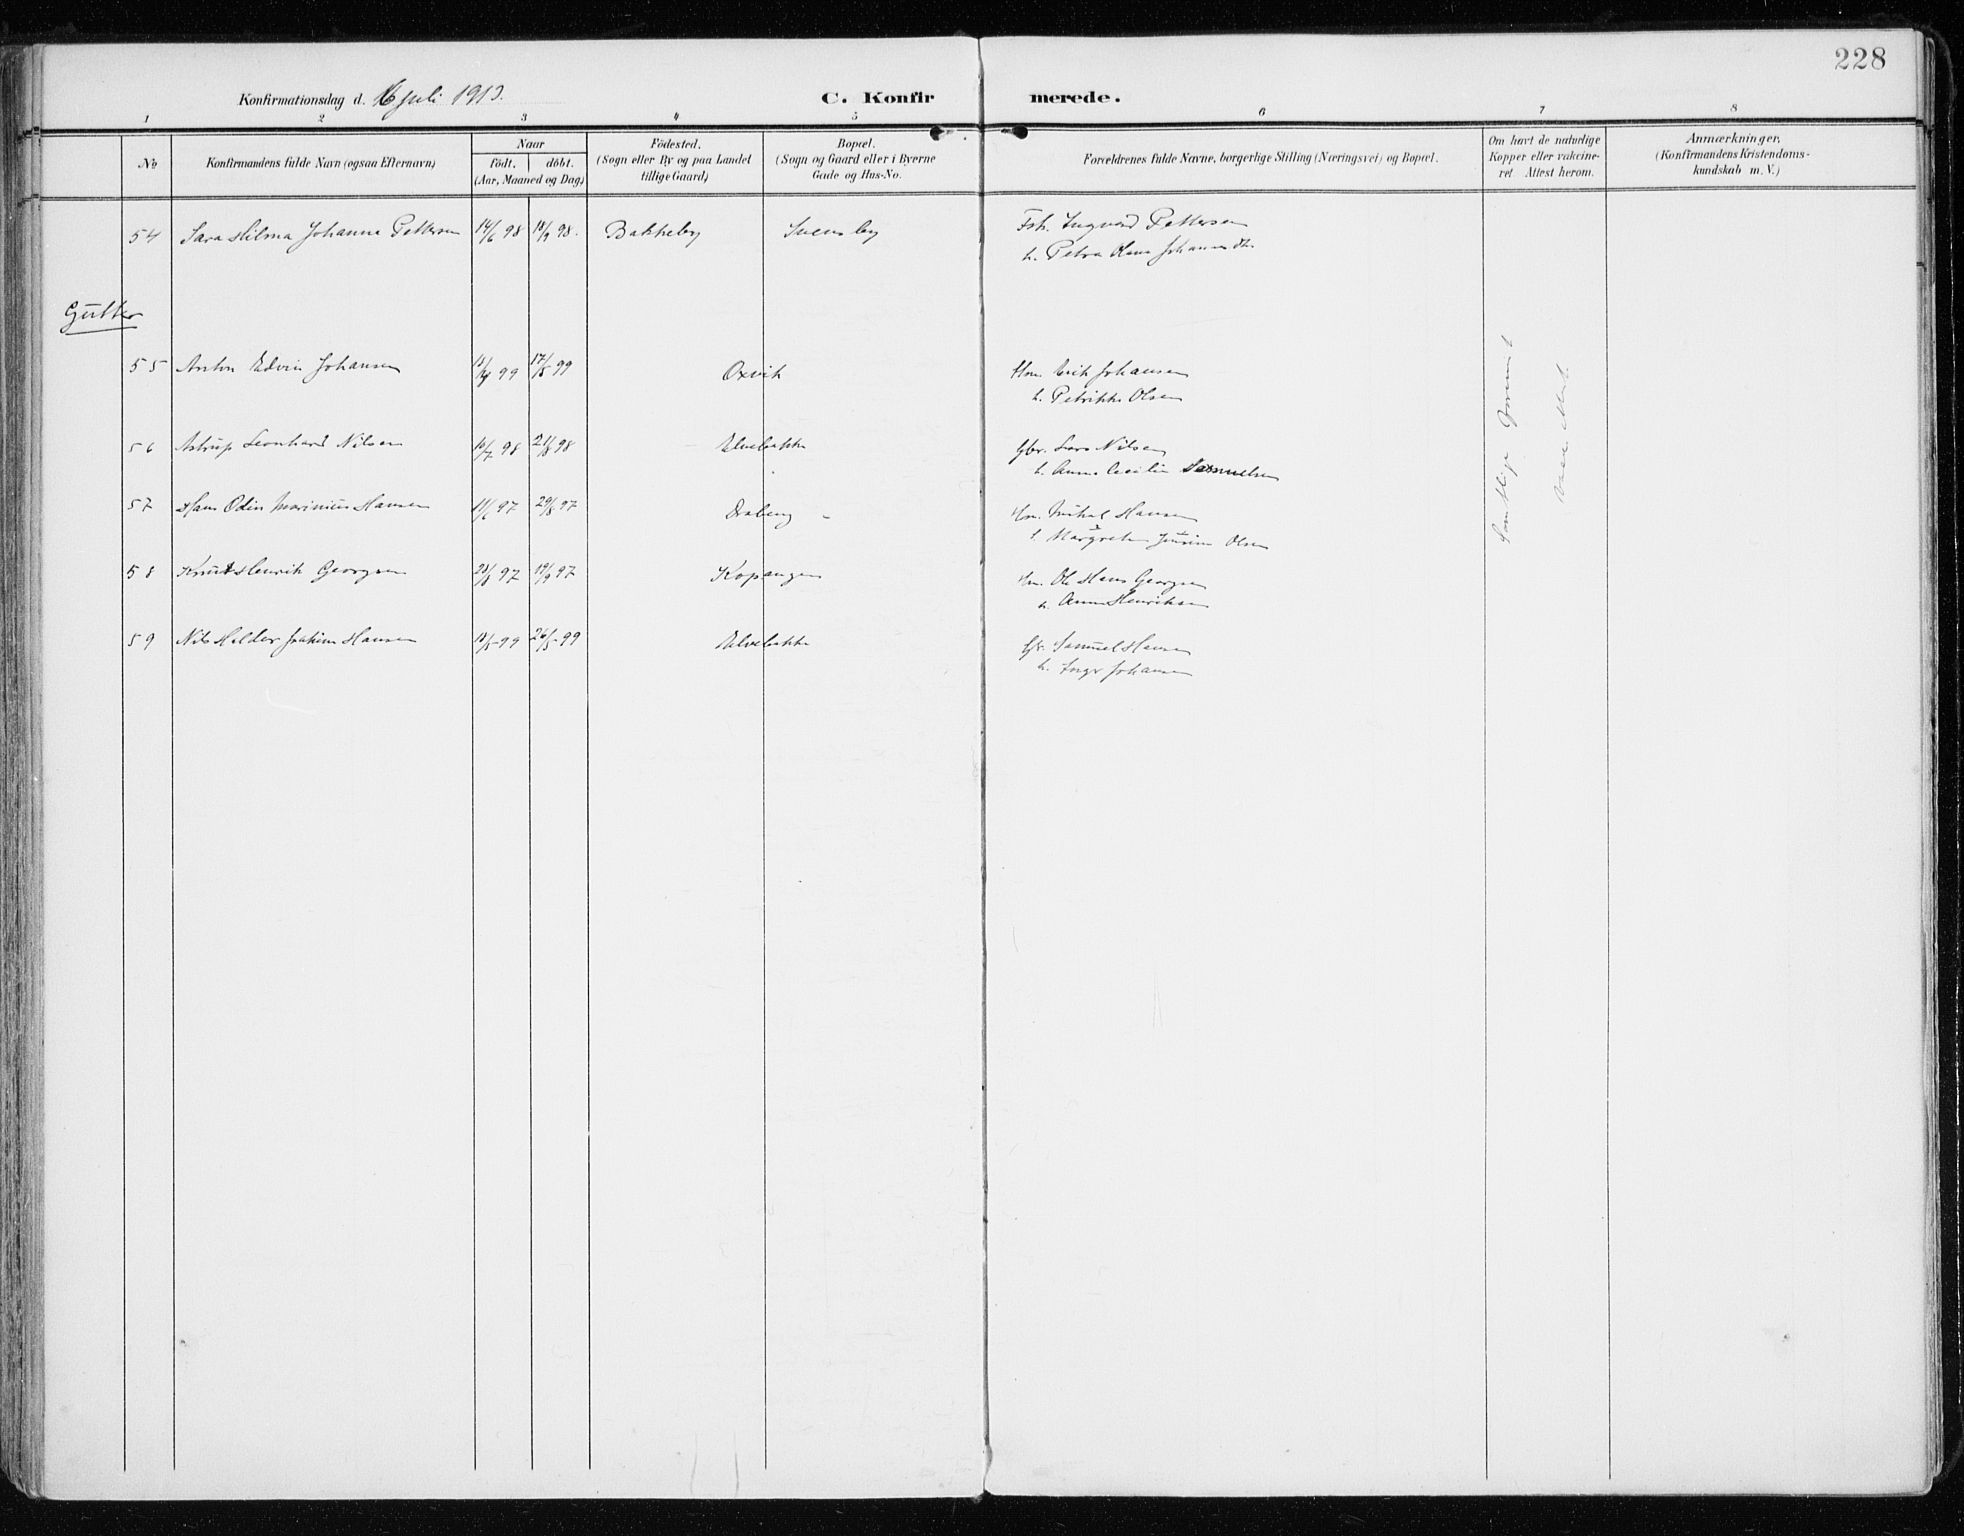 228
Konfirmationsdag d. 6 juli 1913.
C. Konfirmerede.
1 2 3 4 5 6 7 8
No
Konfirmandens fulde Navn (ogsaa Efternavn)
Naar
födt. döbt.
(Aar, Maaned og Dag)
Födested.
(Sogn eller By og paa Landet
tillige Gaard)
Bopæl.
(Sogn og Gaard eller i Byerne
Gade og Hus-No.
Forældrenes fulde Navne, borgerlige Stilling (Næringsvei) og Bopæl.
Om havt de naturlige
Kopper eller vakcine-
ret Attest herom.
Anmærkninger.
(Konfirmandens Kristendoms-
kundskab m. V.)
54 Sara Hilma Johanna Pettersen 14/6 98 18/9 98. Bakkeby Svensby Fsk. Ingvard Pettersen
h. Petra Johannesdtr.
Gutter
55 Anton Edvin Johansen 99 17/5 99 Oxvik Erik Johansen
h. Petrikke Olsen
56 Astrup Leonhard Nilsen 10/7 98 21/8 98 Elvebakke Gbr. Lars Nilsen
h. Anna Cecilie Samuelsen
57 Hans Odin Marinius Hansen 11/6 97 29/8 97 Mikal Hansen
h. Margrete Olsen
58 Knut Henrik Georgsen 23/8 97 19/9 97 Kopangen Ole Hans Georgsen
h. Anna Henriksen
59 Nils Halder Joakim Hansen 18/5-99 26/5-99 Elvebakke Samuel Hansen
h. Inger Johansen
Samtlige